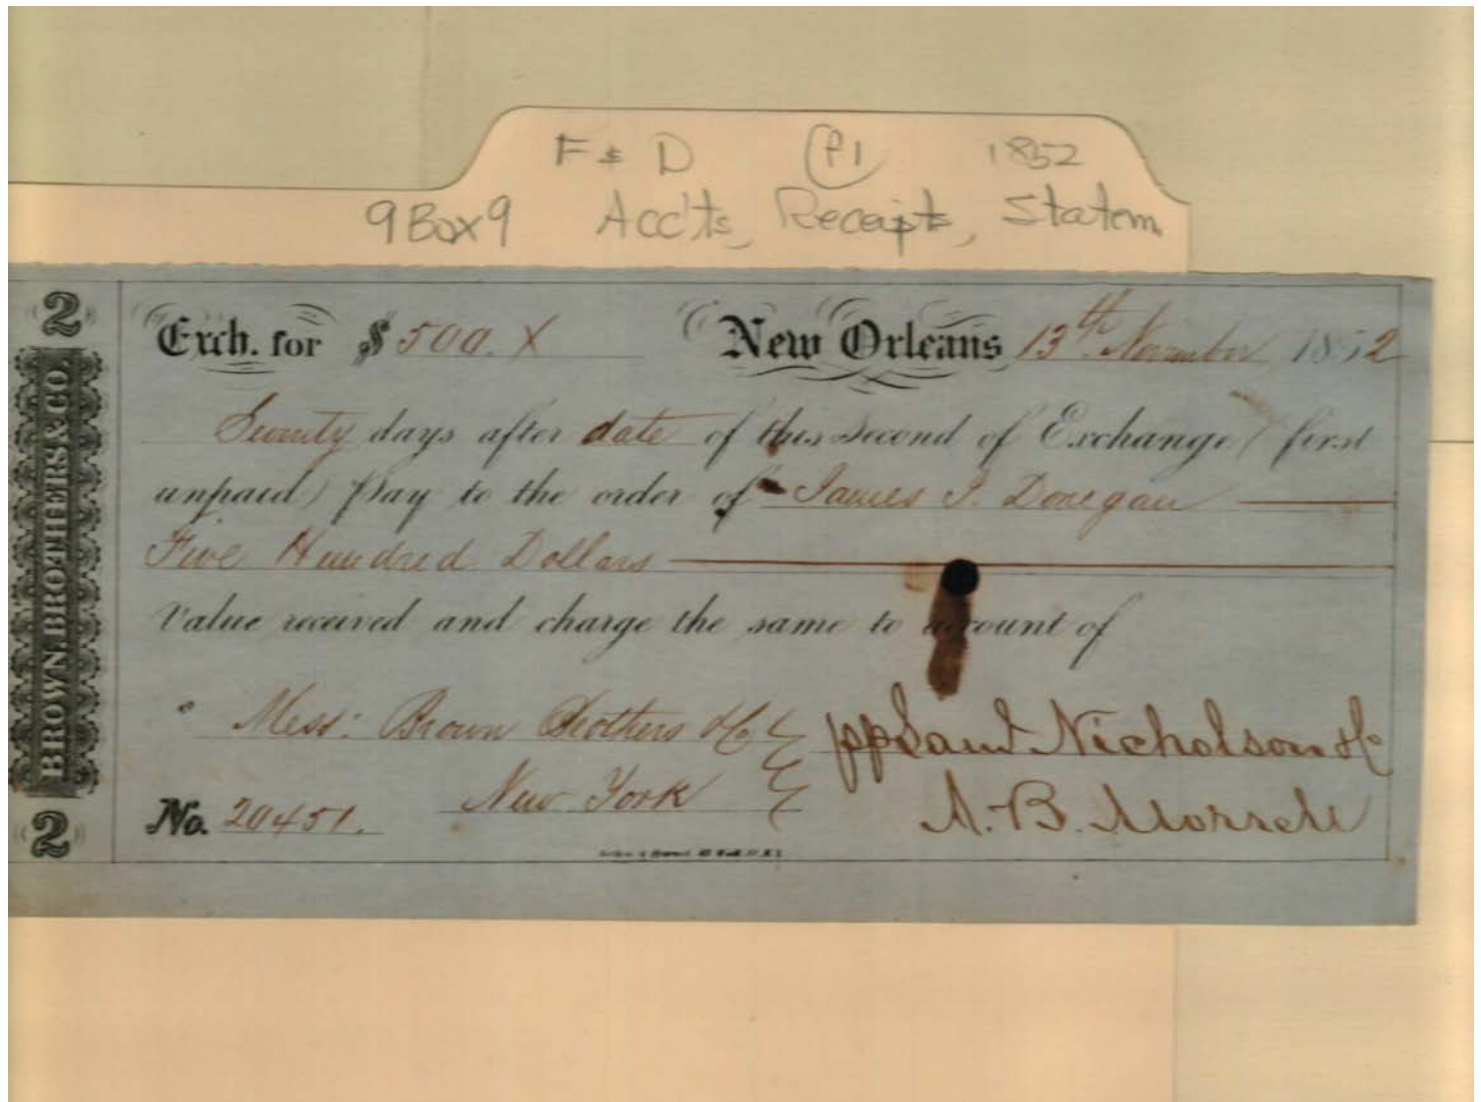 F & D P1 1852
9 Box 9 Acc'ts, Receipts, Statem
2
BROWN BROTHERS & CO.
2
Exch. for $ 500. X New Orleans 13th November 1852
days after date of this Second of Exchange (first
unpaid) Pay to the order of James J. Donegan
Five Hundred Dollars
Value received and charge the same to account of
Mess: Brown Brothers & Co
New York
pp Saml Nicholson & Co
A. B. Morrell
No. 20451.